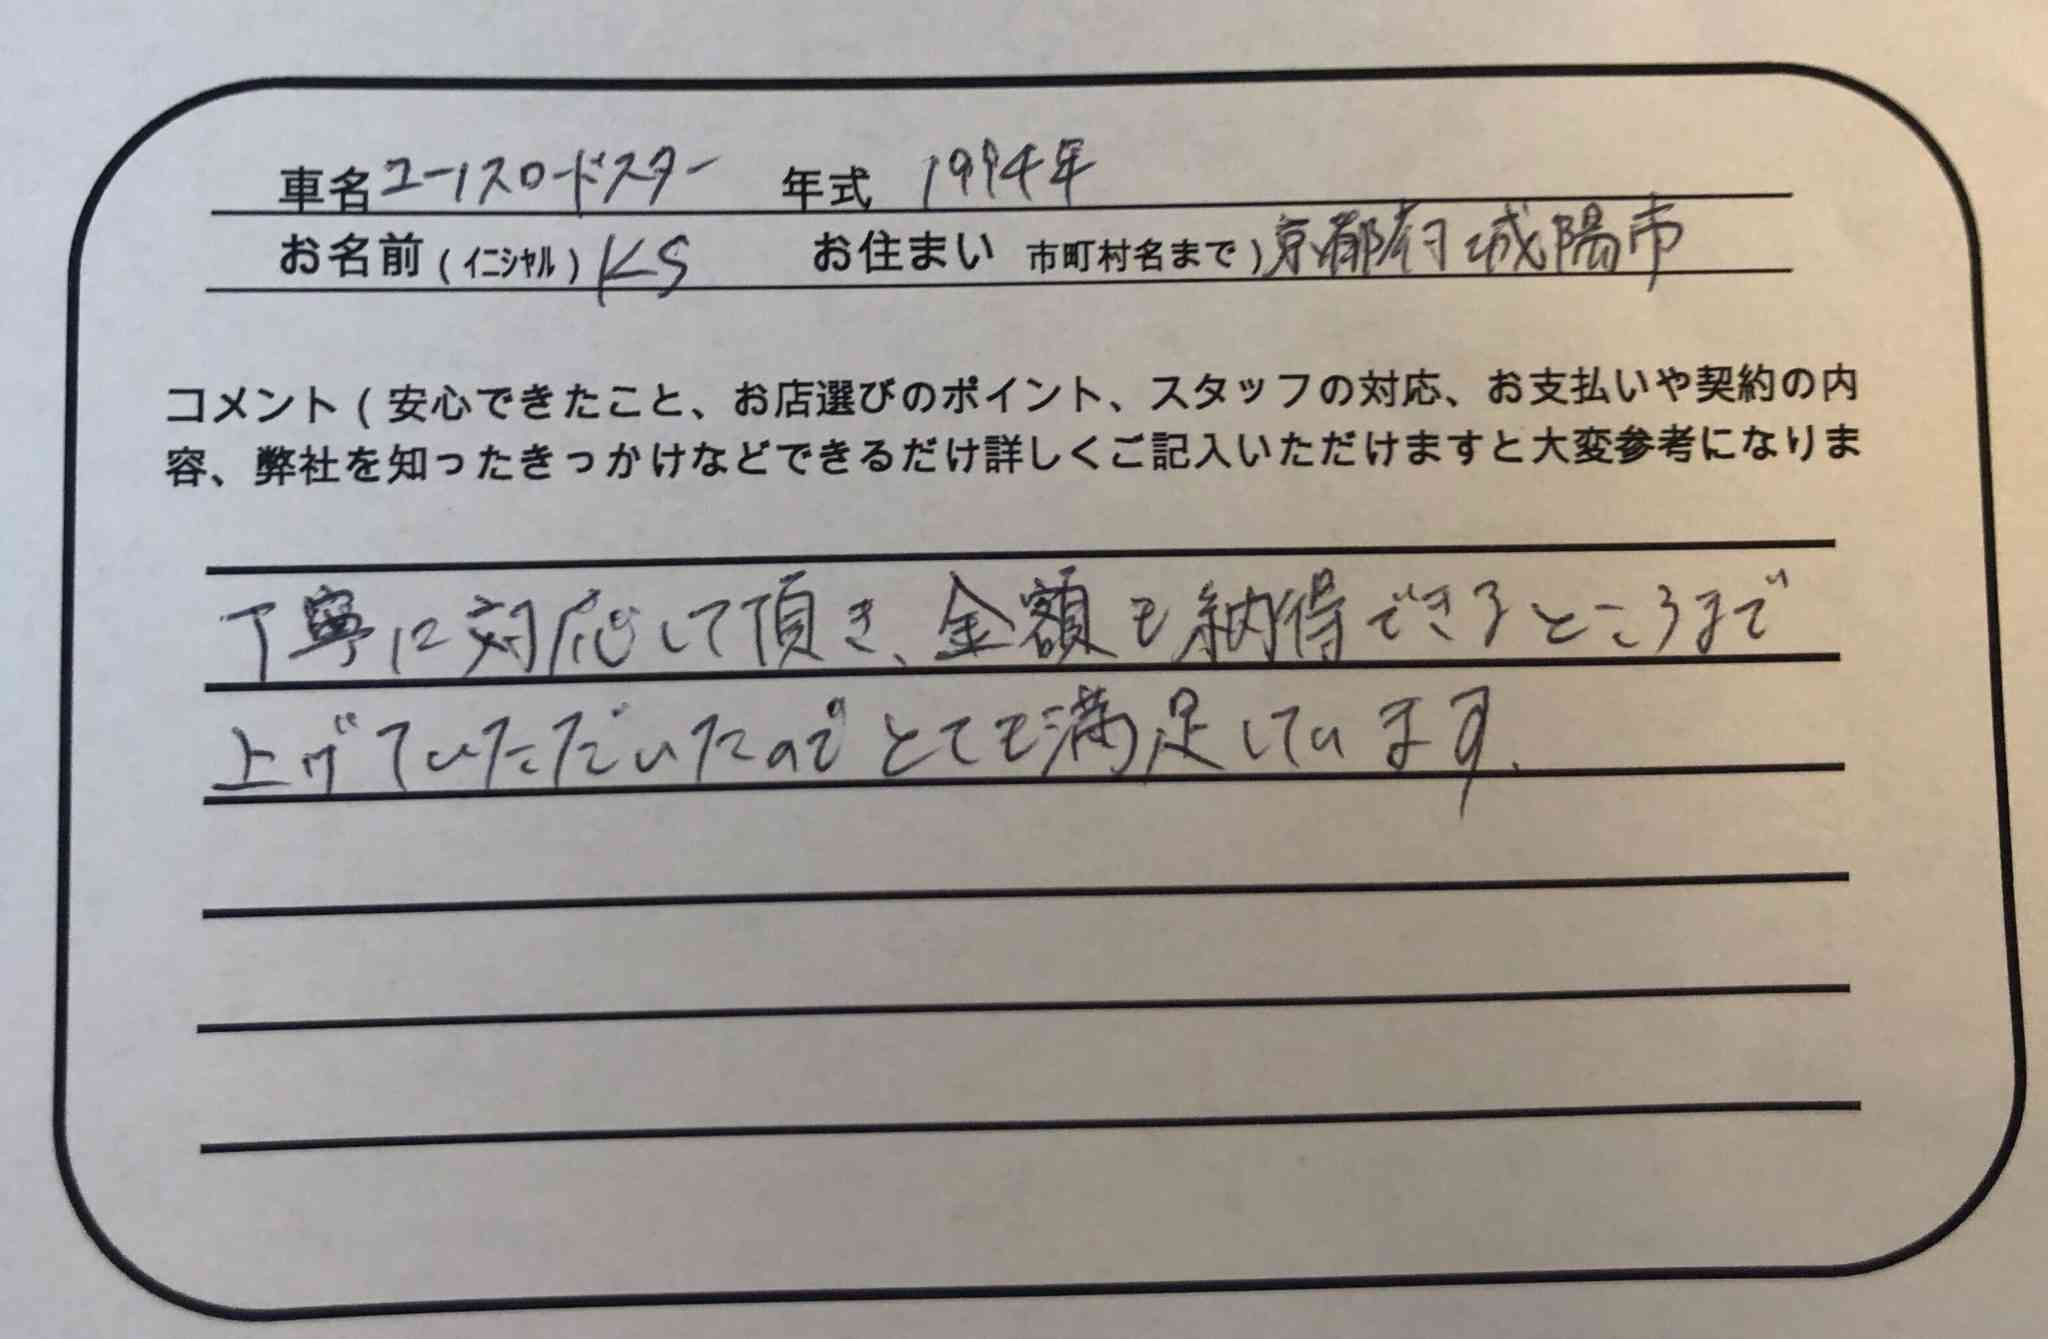 車名 ユーノスロードスター 年式 1994年
お名前(イニシャル) KS お住まい 市町村名まで) 京都府城陽市
コメント(安心できたこと、お店選びのポイント、スタッフの対応、お支払いや契約の内
容、弊社を知ったきっかけなどできるだけ詳しくご記入いただけますと大変参考になりま
丁寧に対応して頂き、金額も納得できるところまで
上げていただいたのでとても満足しています.